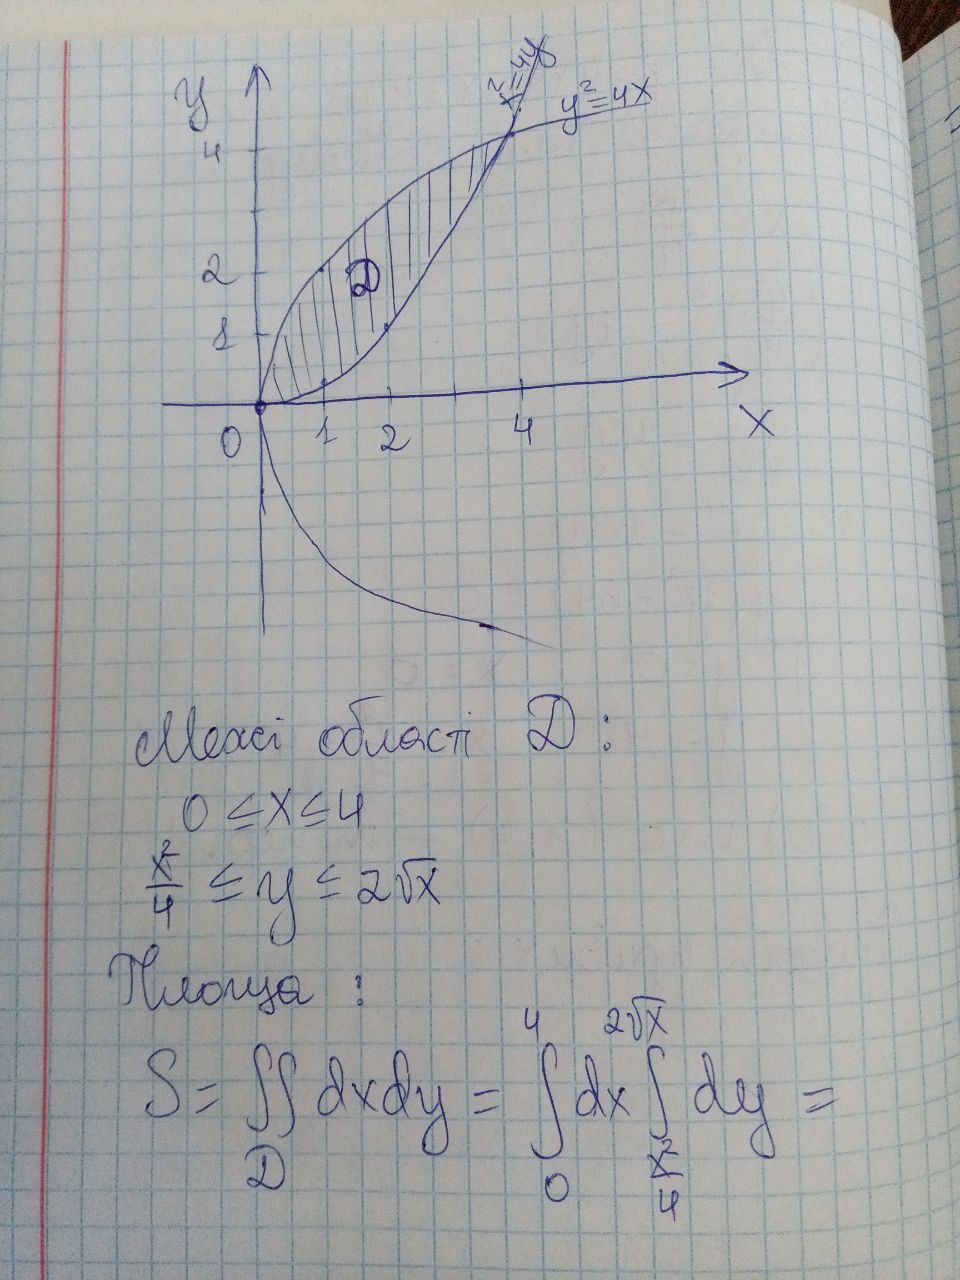 y
x²=4y
y²=4x
4
2
D
1
0 1 2 4 x
Межі області D :
0 ≤ x ≤ 4
x²/4 ≤ y ≤ 2√x
Площа :
S = ∬_D dxdy = ∫_0^4 dx ∫_{x²/4}^{2√x} dy =